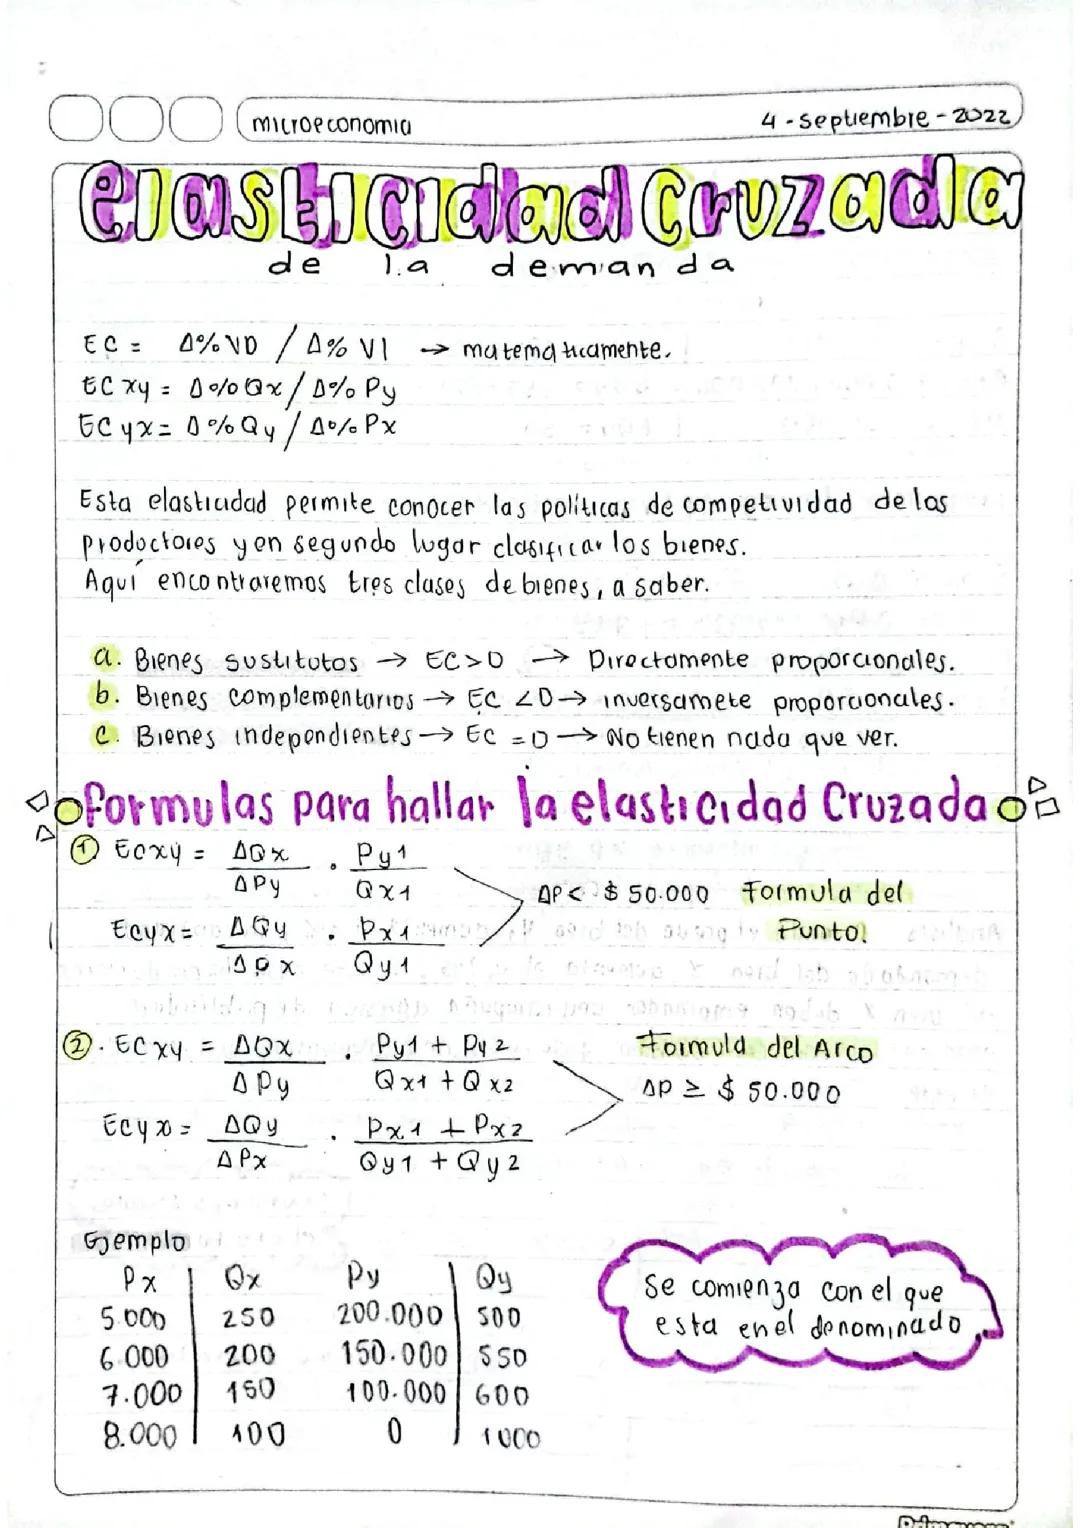 microeconomia
4-septiembre-2022
elasticidad Cruzada
de la demanda
EC = Δ%VD / Δ% VI → matematicamente.
EC xy = Δ%Qx / Δ% Py
EC yx = Δ%Qy / Δ% Px
Esta elasticidad permite conocer las políticas de competividad de los
productores y en segundo lugar clasificar los bienes.
Aquí encontraremos tres clases de bienes, a saber.
a. Bienes sustitutos → EC>0 → Directamente proporcionales.
b. Bienes complementarios → EC <0 → inversamete proporcionales.
c. Bienes independientes → EC =0 → No tienen nada que ver.
formulas para hallar la elasticidad Cruzada
① ECxy = ΔQx / ΔPy . Py1 / Qx1
ΔP < $ 50.000 Formula del
Punto.
Ecyx = ΔQy / ΔPx . Px1 / Qy1
②. ECxy = ΔQx / ΔPy . Py1 + Py2 / Qx1 + Qx2
Formula del Arco
ΔP ≥ $ 50.000
Ecyx = ΔQy / ΔPx . Px1 + Px2 / Qy1 + Qy2
Ejemplo
Px Qx Py Qy
5.000 250 200.000 500
6.000 200 150.000 550
7.000 150 100.000 600
8.000 100 0 1000
Se comienza con el que
esta en el denominado